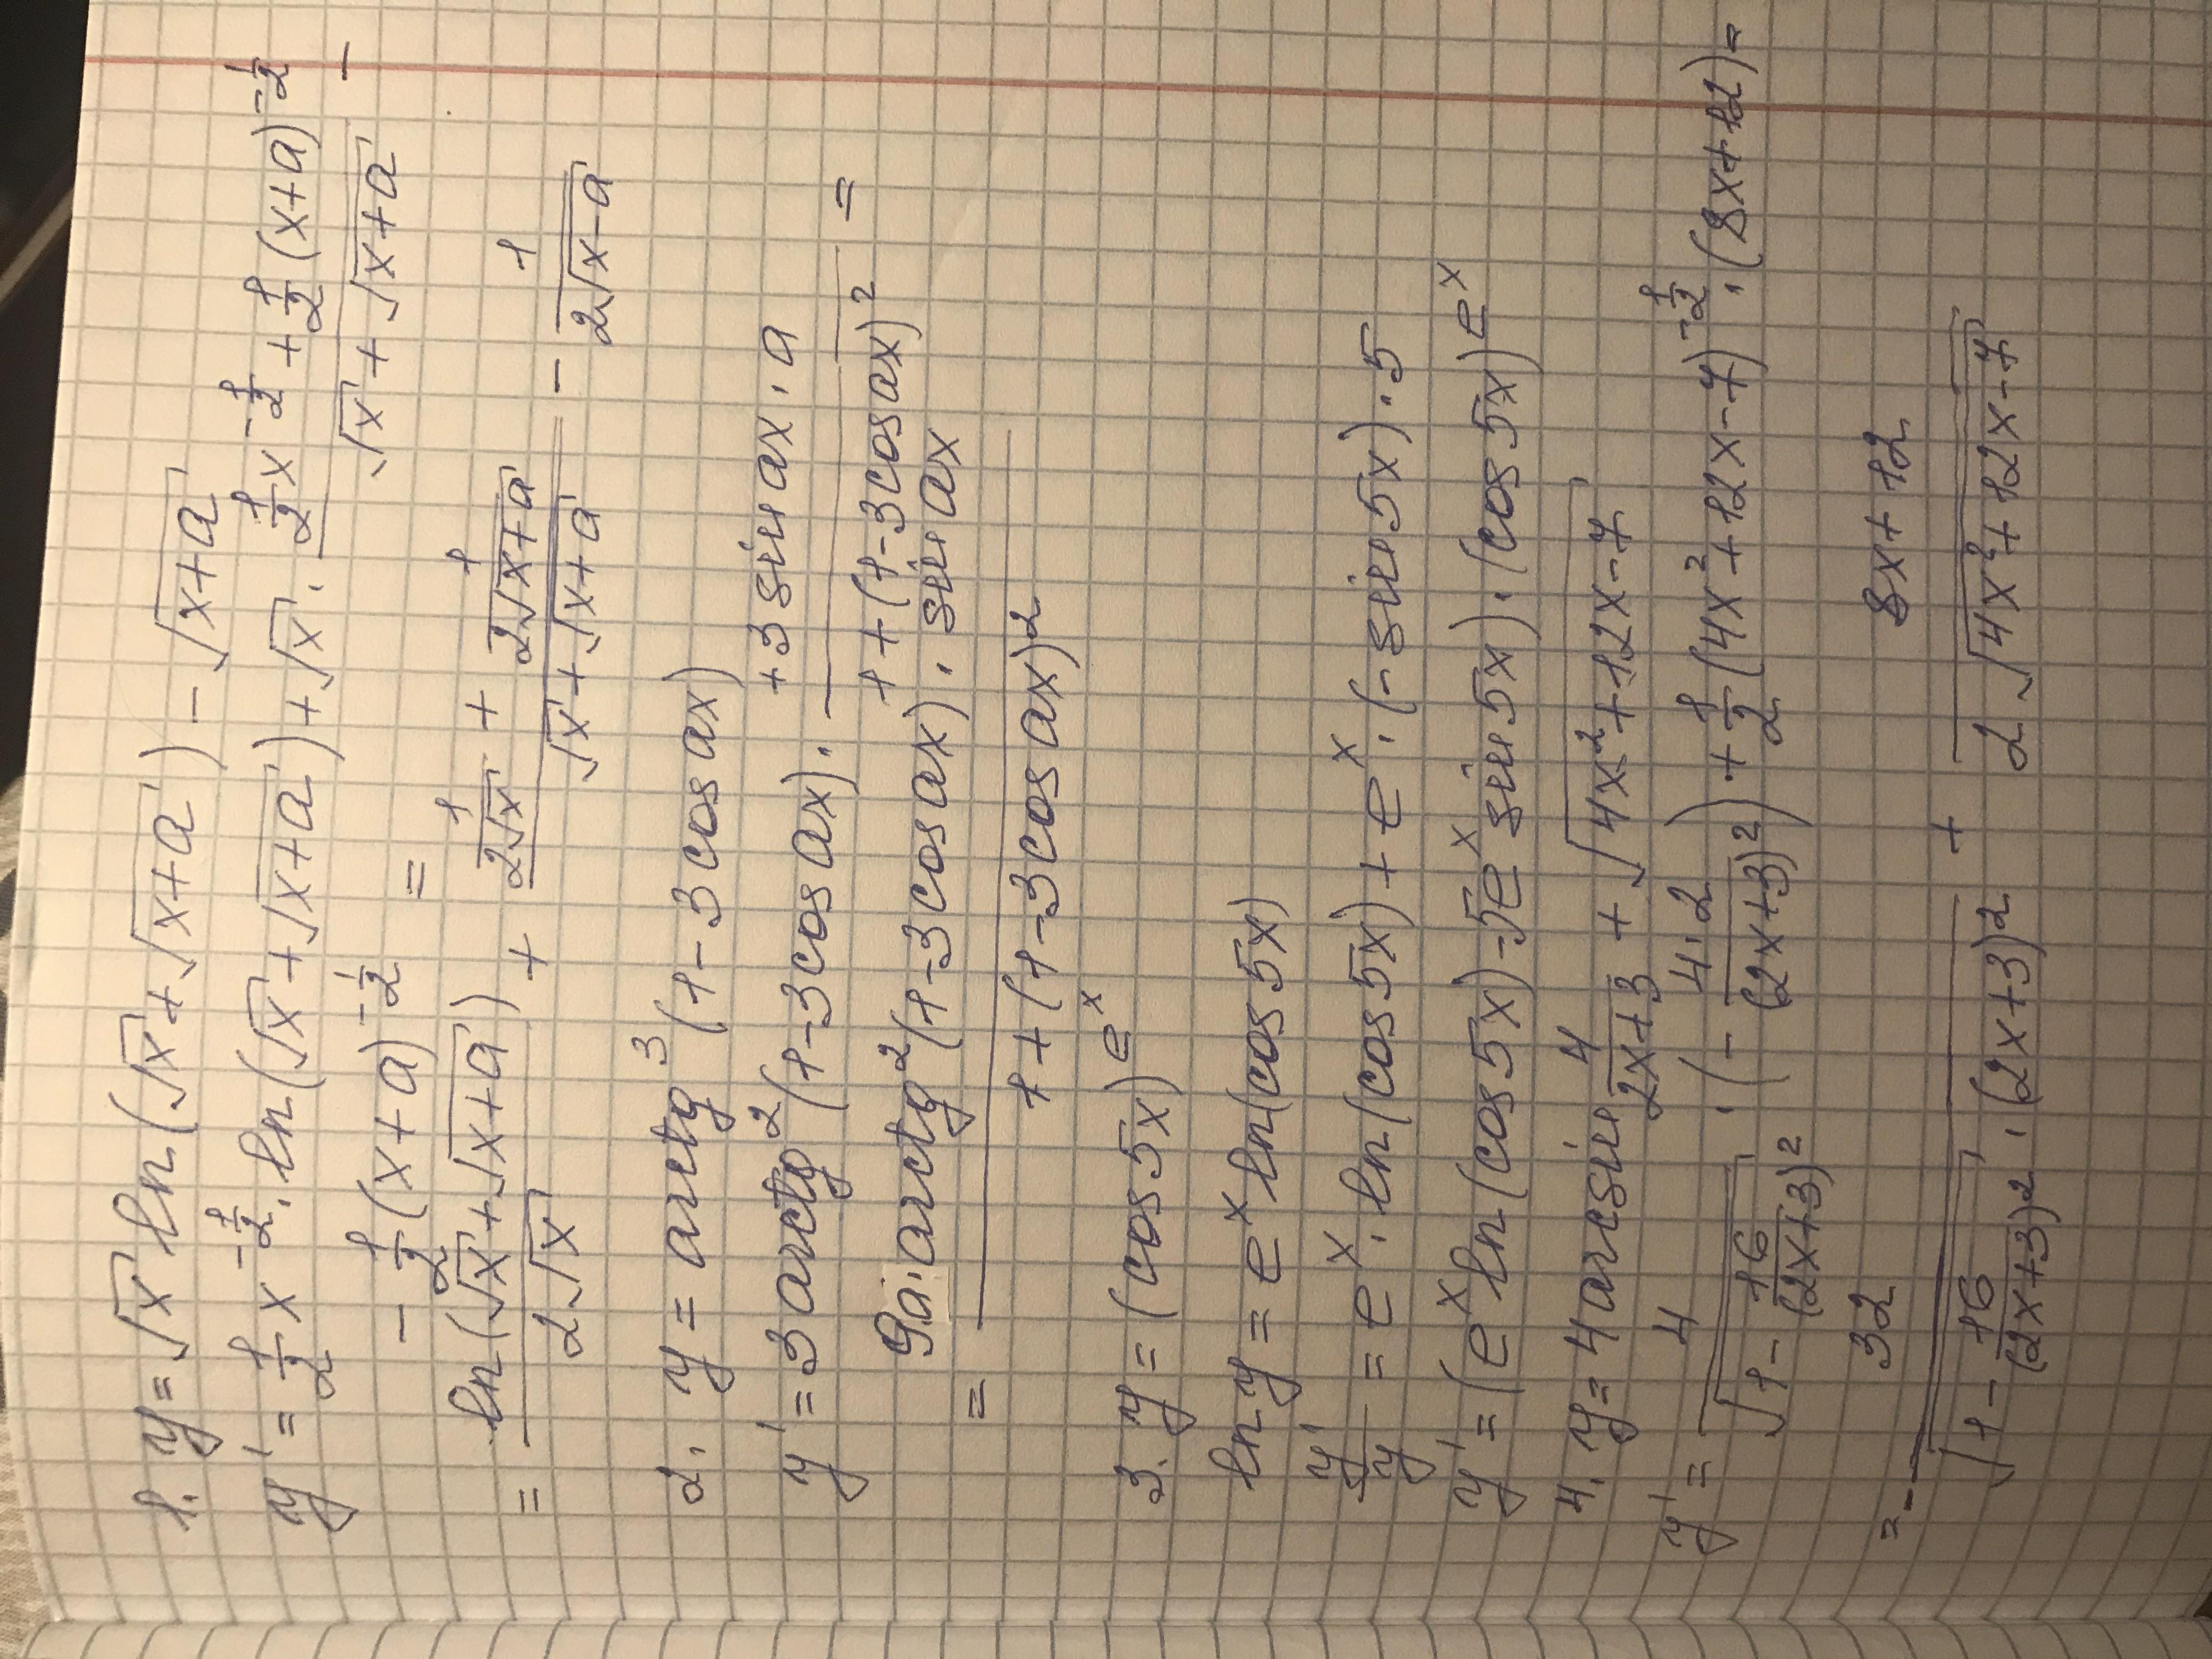 1. y = √x ln(√x + √(x+a)) - √(x+a)
y' = 1/2 x^(-1/2) · ln(√x + √(x+a)) + √x · (1/2 x^(-1/2) + 1/2 (x+a)^(-1/2))/(√x + √(x+a)) -
- 1/2 (x+a)^(-1/2) =
= ln(√x + √(x+a))/(2√x) + (1/(2√x) + 1/(2√(x+a)))/(√x + √(x+a)) - 1/(2√(x-a))
2. y = arctg³(1-3cos ax)
y' = 3arctg²(1-3cos ax) · (+3 sin ax · a)/(1+(1-3cos ax)²) =
= (9a · arctg²(1-3cos ax) · sin ax)/(1+(1-3cos ax)²)
3. y = (cos 5x)^(e^x)
ln y = e^x ln(cos 5x)
y'/y = e^x · ln(cos 5x) + e^x · (-sin 5x) · 5
y' = (e^x ln(cos 5x) - 5e^x sin 5x) · (cos 5x)^(e^x)
4. y = 4arcsin 4/(2x+3) + √(4x²+12x-7)
y' = 4/√(1 - 16/(2x+3)²) · (- 4·2/(2x+3)²) + 1/2 (4x²+12x-7)^(-1/2) · (8x+12) =
= - 32/(√(1 - 16/(2x+3)²) · (2x+3)²) + (8x+12)/(2√(4x²+12x-7))